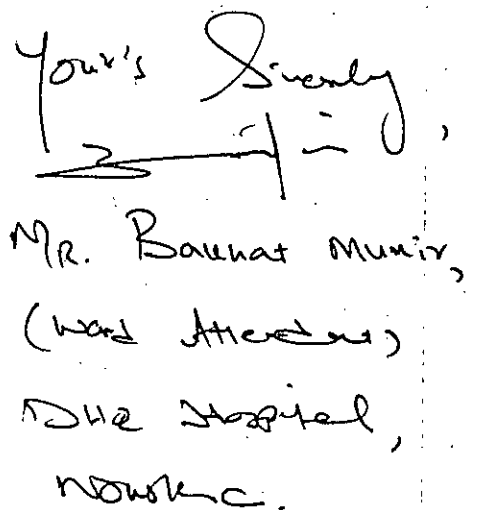 Your's Sincerely,
MR. Bakhat Munir,
(Ward Attendant)
DHQ Hospital,
Nowshera.